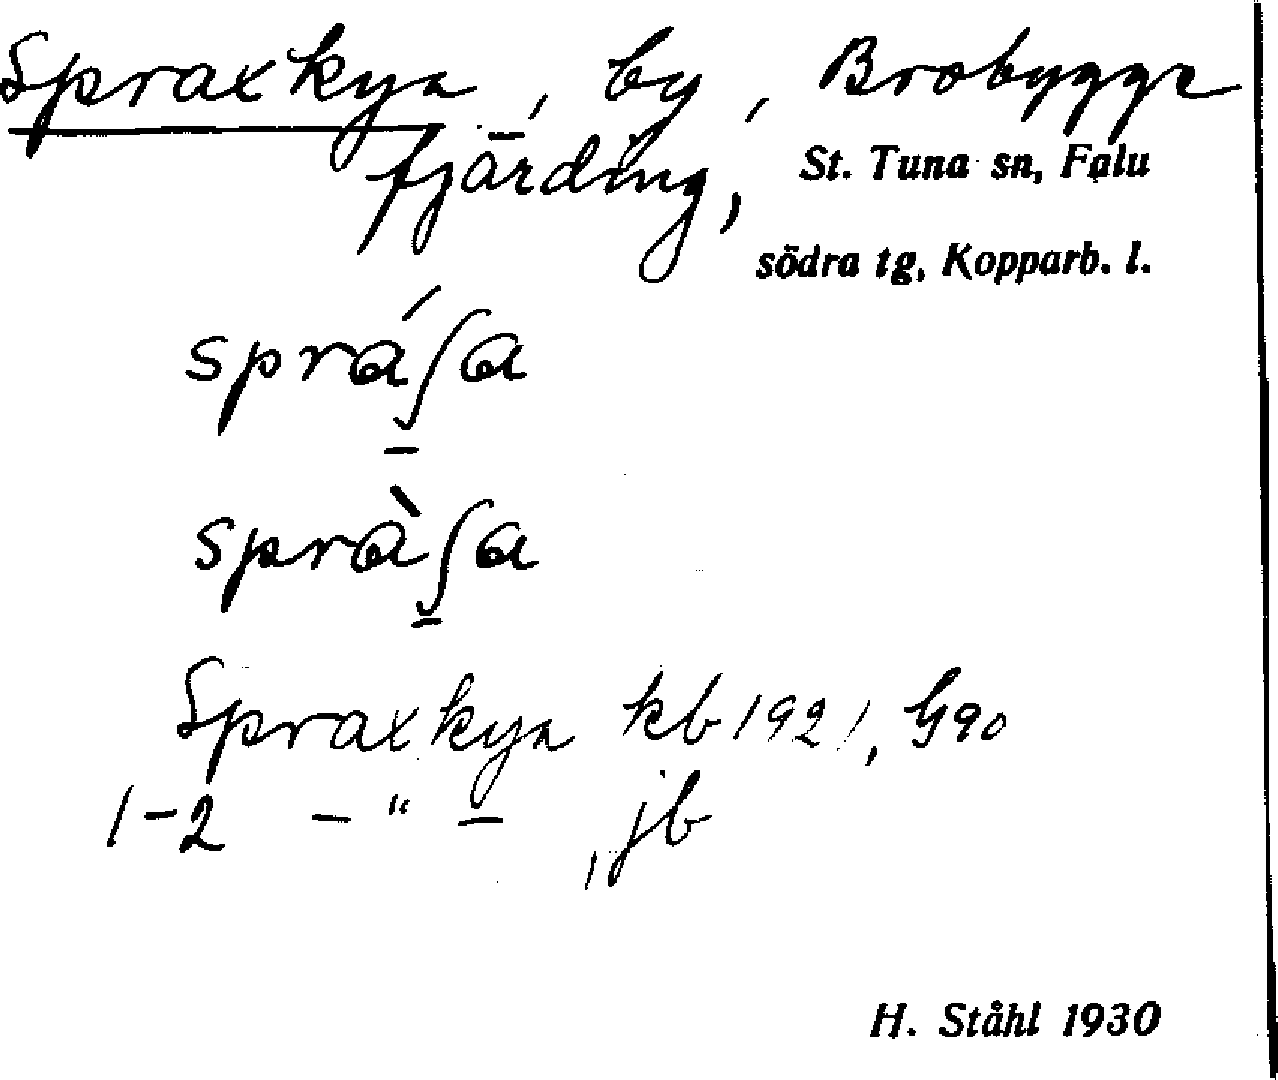 Spraxkya, by, Brobygge
fjärding,
St. Tuna sn, Falu
södra tg, Kopparb. l.
sprá̱ʃa
sprà̱ʃa
Spraxkya kb 1921, G90
1-2 - " - , jb
H. Ståhl 1930